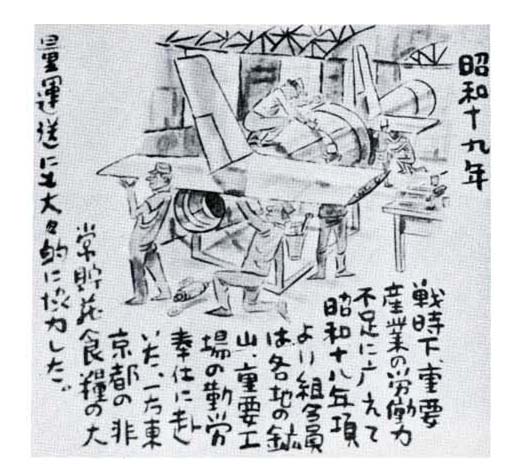 昭和十九年
戦時下、重要
産業の労働力
不足に応えて
昭和十八年項
より組合員
は各地の鉱
山、重要工
場の勤労
奉仕に赴
いた、一方東
京都の非
常貯蔵食糧の大
量運送にも大々的に協力した。